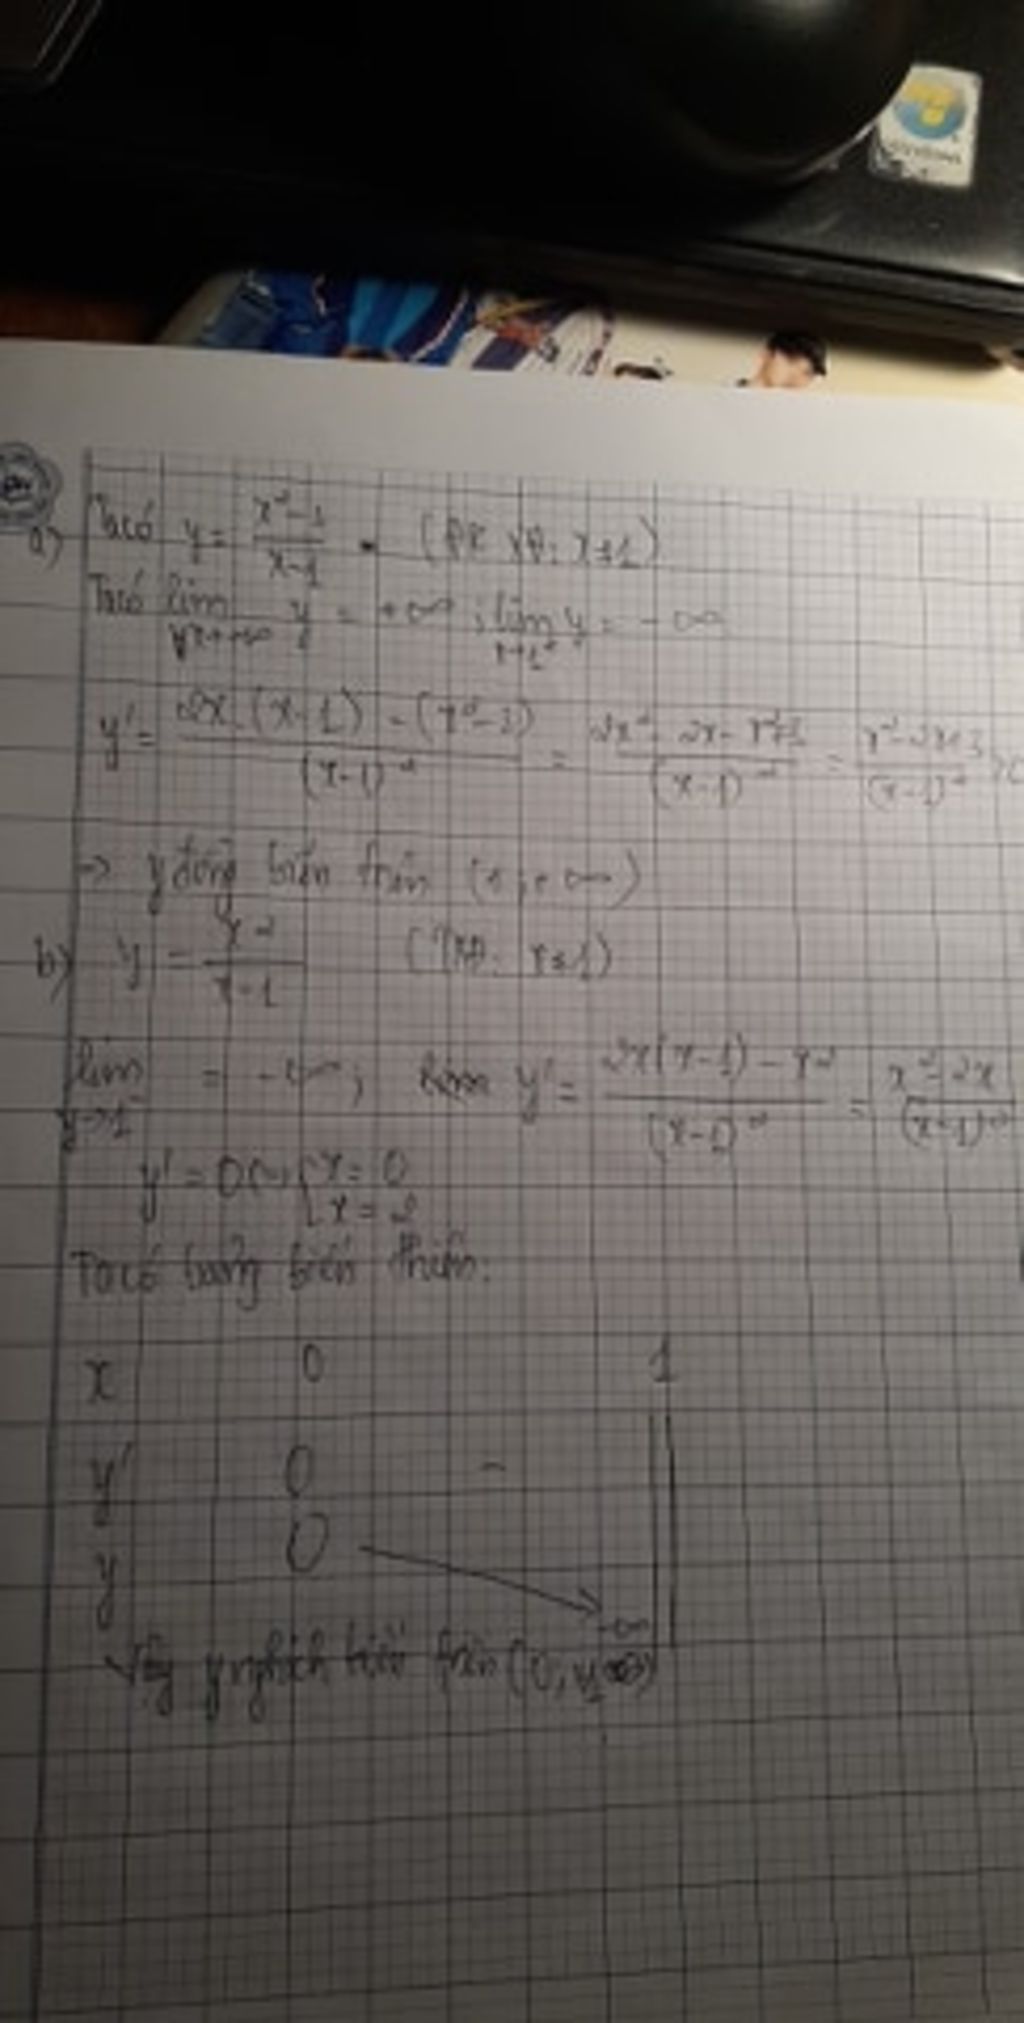 a) Ta có y = \frac{x^2-3}{x-1} (ĐKXĐ: x≠1)
Ta có lim y = +∞; lim y = -∞
y' = \frac{2x(x-1) - (x^2-3)}{(x-1)^2} = \frac{2x^2 - 2x - x^2+3}{(x-1)^2} = \frac{x^2-2x+3}{(x-1)^2}
→ y đồng biến trên (1; +∞)
b) y = \frac{x^2}{x-1} (x≠1)
lim = -∞; y' = \frac{2x(x-1) - x^2}{(x-1)^2} = \frac{x^2-2x}{(x-1)^2}
y' = 0 x = 0
x = 2
Ta có bảng biến thiên.
x 0 1
y' 0 -
y 0 -∞
Vậy y nghịch biến trên (0;